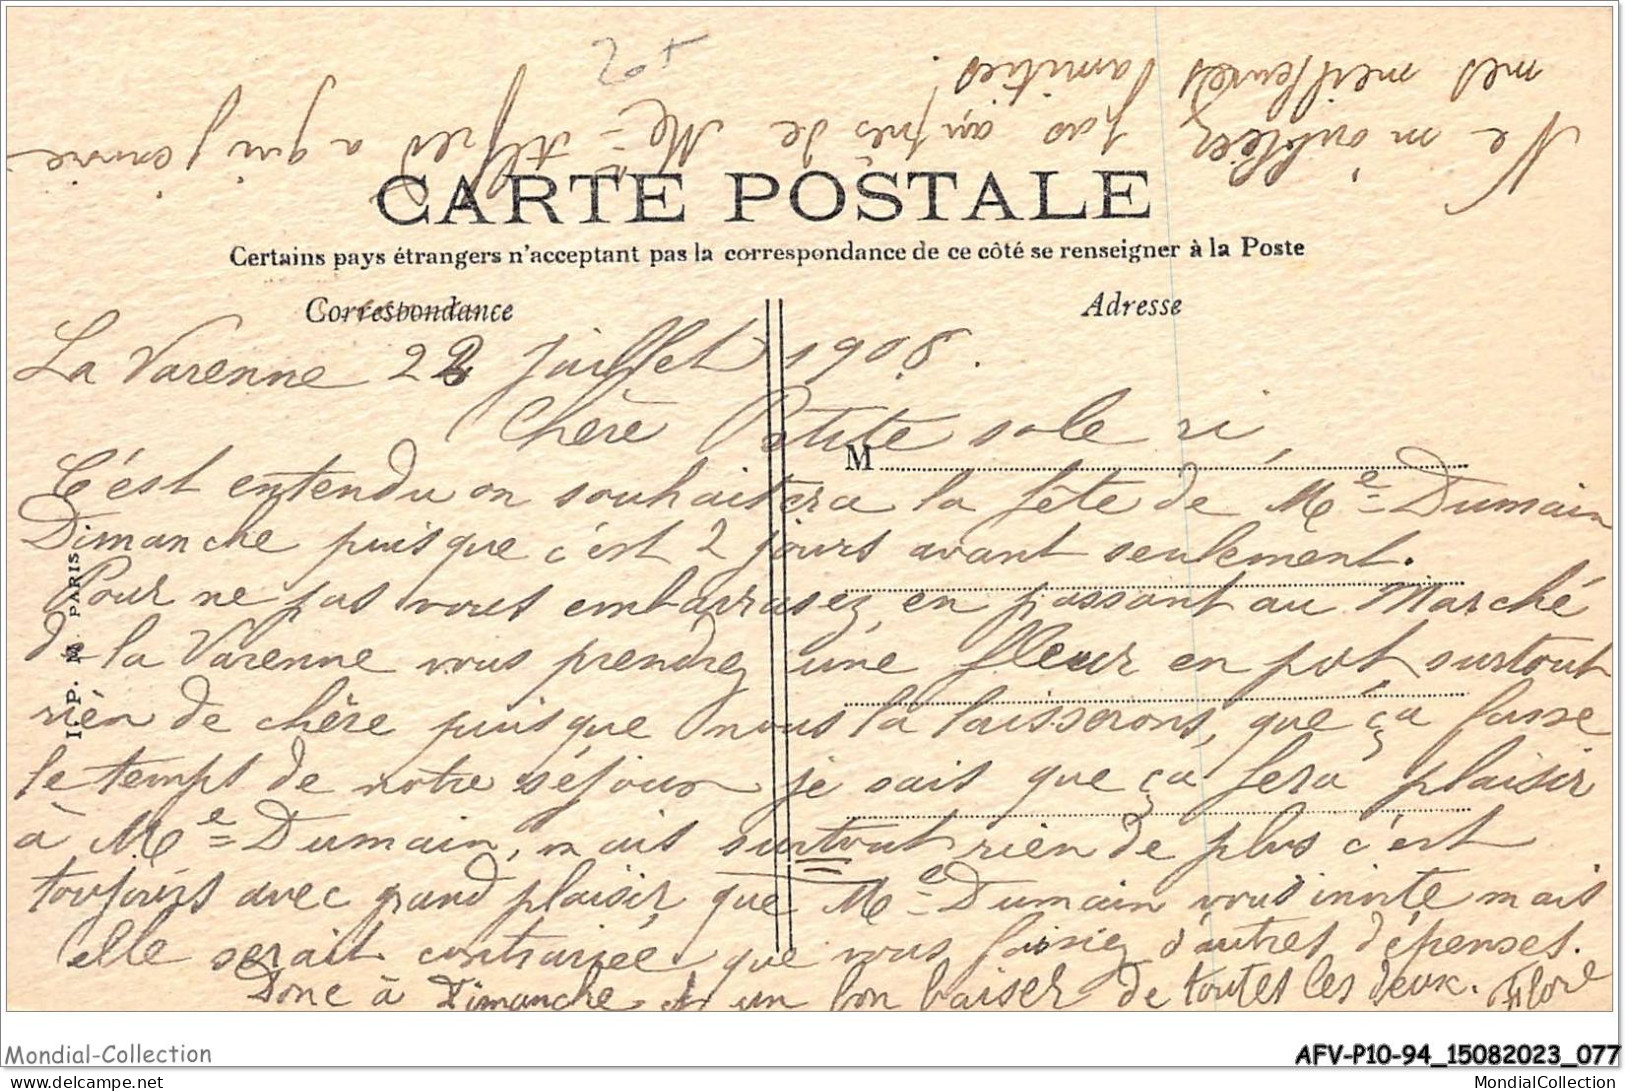 20+
Ne m'oubliez pas auprès de Me Alfred a qui j'envoie
mes meilleures amitiés.
CARTE POSTALE
Certains pays étrangers n'acceptant pas la correspondance de ce côté se renseigner à la Poste
Correspondance
Adresse
La Varenne 22 Juillet 1908.
Chère Petite
M
C'est entendu on souhaitera la fête de Me Dumain
Dimanche puisque c'est 2 jours avant seulement.
Pour ne pas vous embarrasez, en passant au Marché
de la Varenne vous prendrez une fleur en pot, surtout
rien de chère puisque nous la laisserons, que ça fasse
le temps de notre séjour je sais que ça fera plaisir
à Me Dumain, mais surtout rien de plus c'est
toujours avec grand plaisir, que Me Dumain vous invite mais
elle serait contrariée que vous fassiez d'autres dépenses.
Donc à Dimanche et un bon baiser de toutes les deux. Flore
I. P. M. PARIS
Mondial-Collection
AFV-P10-94_15082023_077
www.delcampe.net
MondialCollection